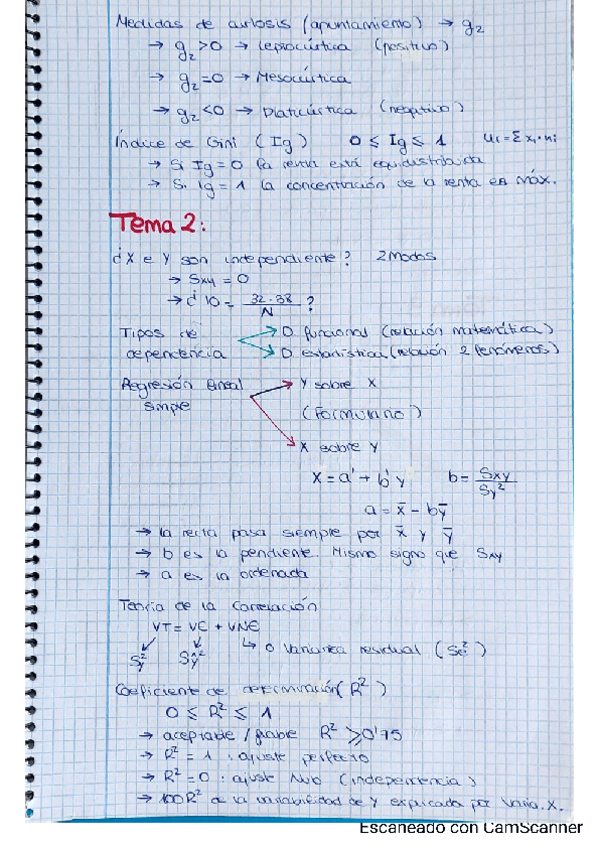 Medidas de curtosis (apuntamiento) → g₂
→ g₂>0 → Leptocúrtica (positivo)
→ g₂=0 → Mesocúrtica
→ g₂<0 → Platicúrtica (negativo)
Índice de Gini (Ig) 0 ≤ Ig ≤ 1 ui=Σxi·ni
→ Si Ig=0 la renta está equidistribuida
→ Si Ig=1 la concentración de la renta es máx.
Tema 2:
¿X e Y son independiente? 2 Modos
→ Sxy = 0
→ ¿10 = 32·38/N ?
Tipos de → D. funcional (relación matemática)
dependencia → D. estadística (relación 2 fenómenos)
Regresión lineal → Y sobre X
simple (Formulario)
→ X sobre Y
X = a' + b'y b = Sxy/Sy²
a = x̄ - bȳ
→ la recta pasa siempre por x̄ y ȳ
→ b es la pendiente. Mismo signo que Sxy
→ a es la ordenada
Teoría de la Correlación
VT = VE + VNE
Sy² Sŷ² ↳ o Varianza residual (Se²)
Coeficiente de determinación (R²)
0 ≤ R² ≤ 1
→ aceptable / fiable R² ≥ 0'75
→ R² = 1 : ajuste perfecto
→ R² = 0 : ajuste Nulo (independencia)
→ 100R² de la variabilidad de Y explicada por Varia. X.
Escaneado con CamScanner